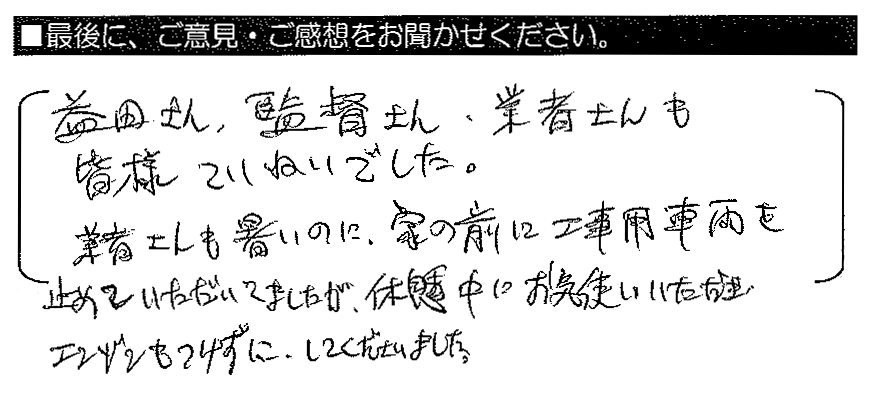 ■最後に、ご意見・ご感想をお聞かせください。
益田さん、監督さん、業者さんも
皆様ていねいでした。
業者さんも暑いのに、家の前に工事用車両を
止めていただいてましたが、休憩中にお気使いいただき
エンジンもつけずに、してくださいました。